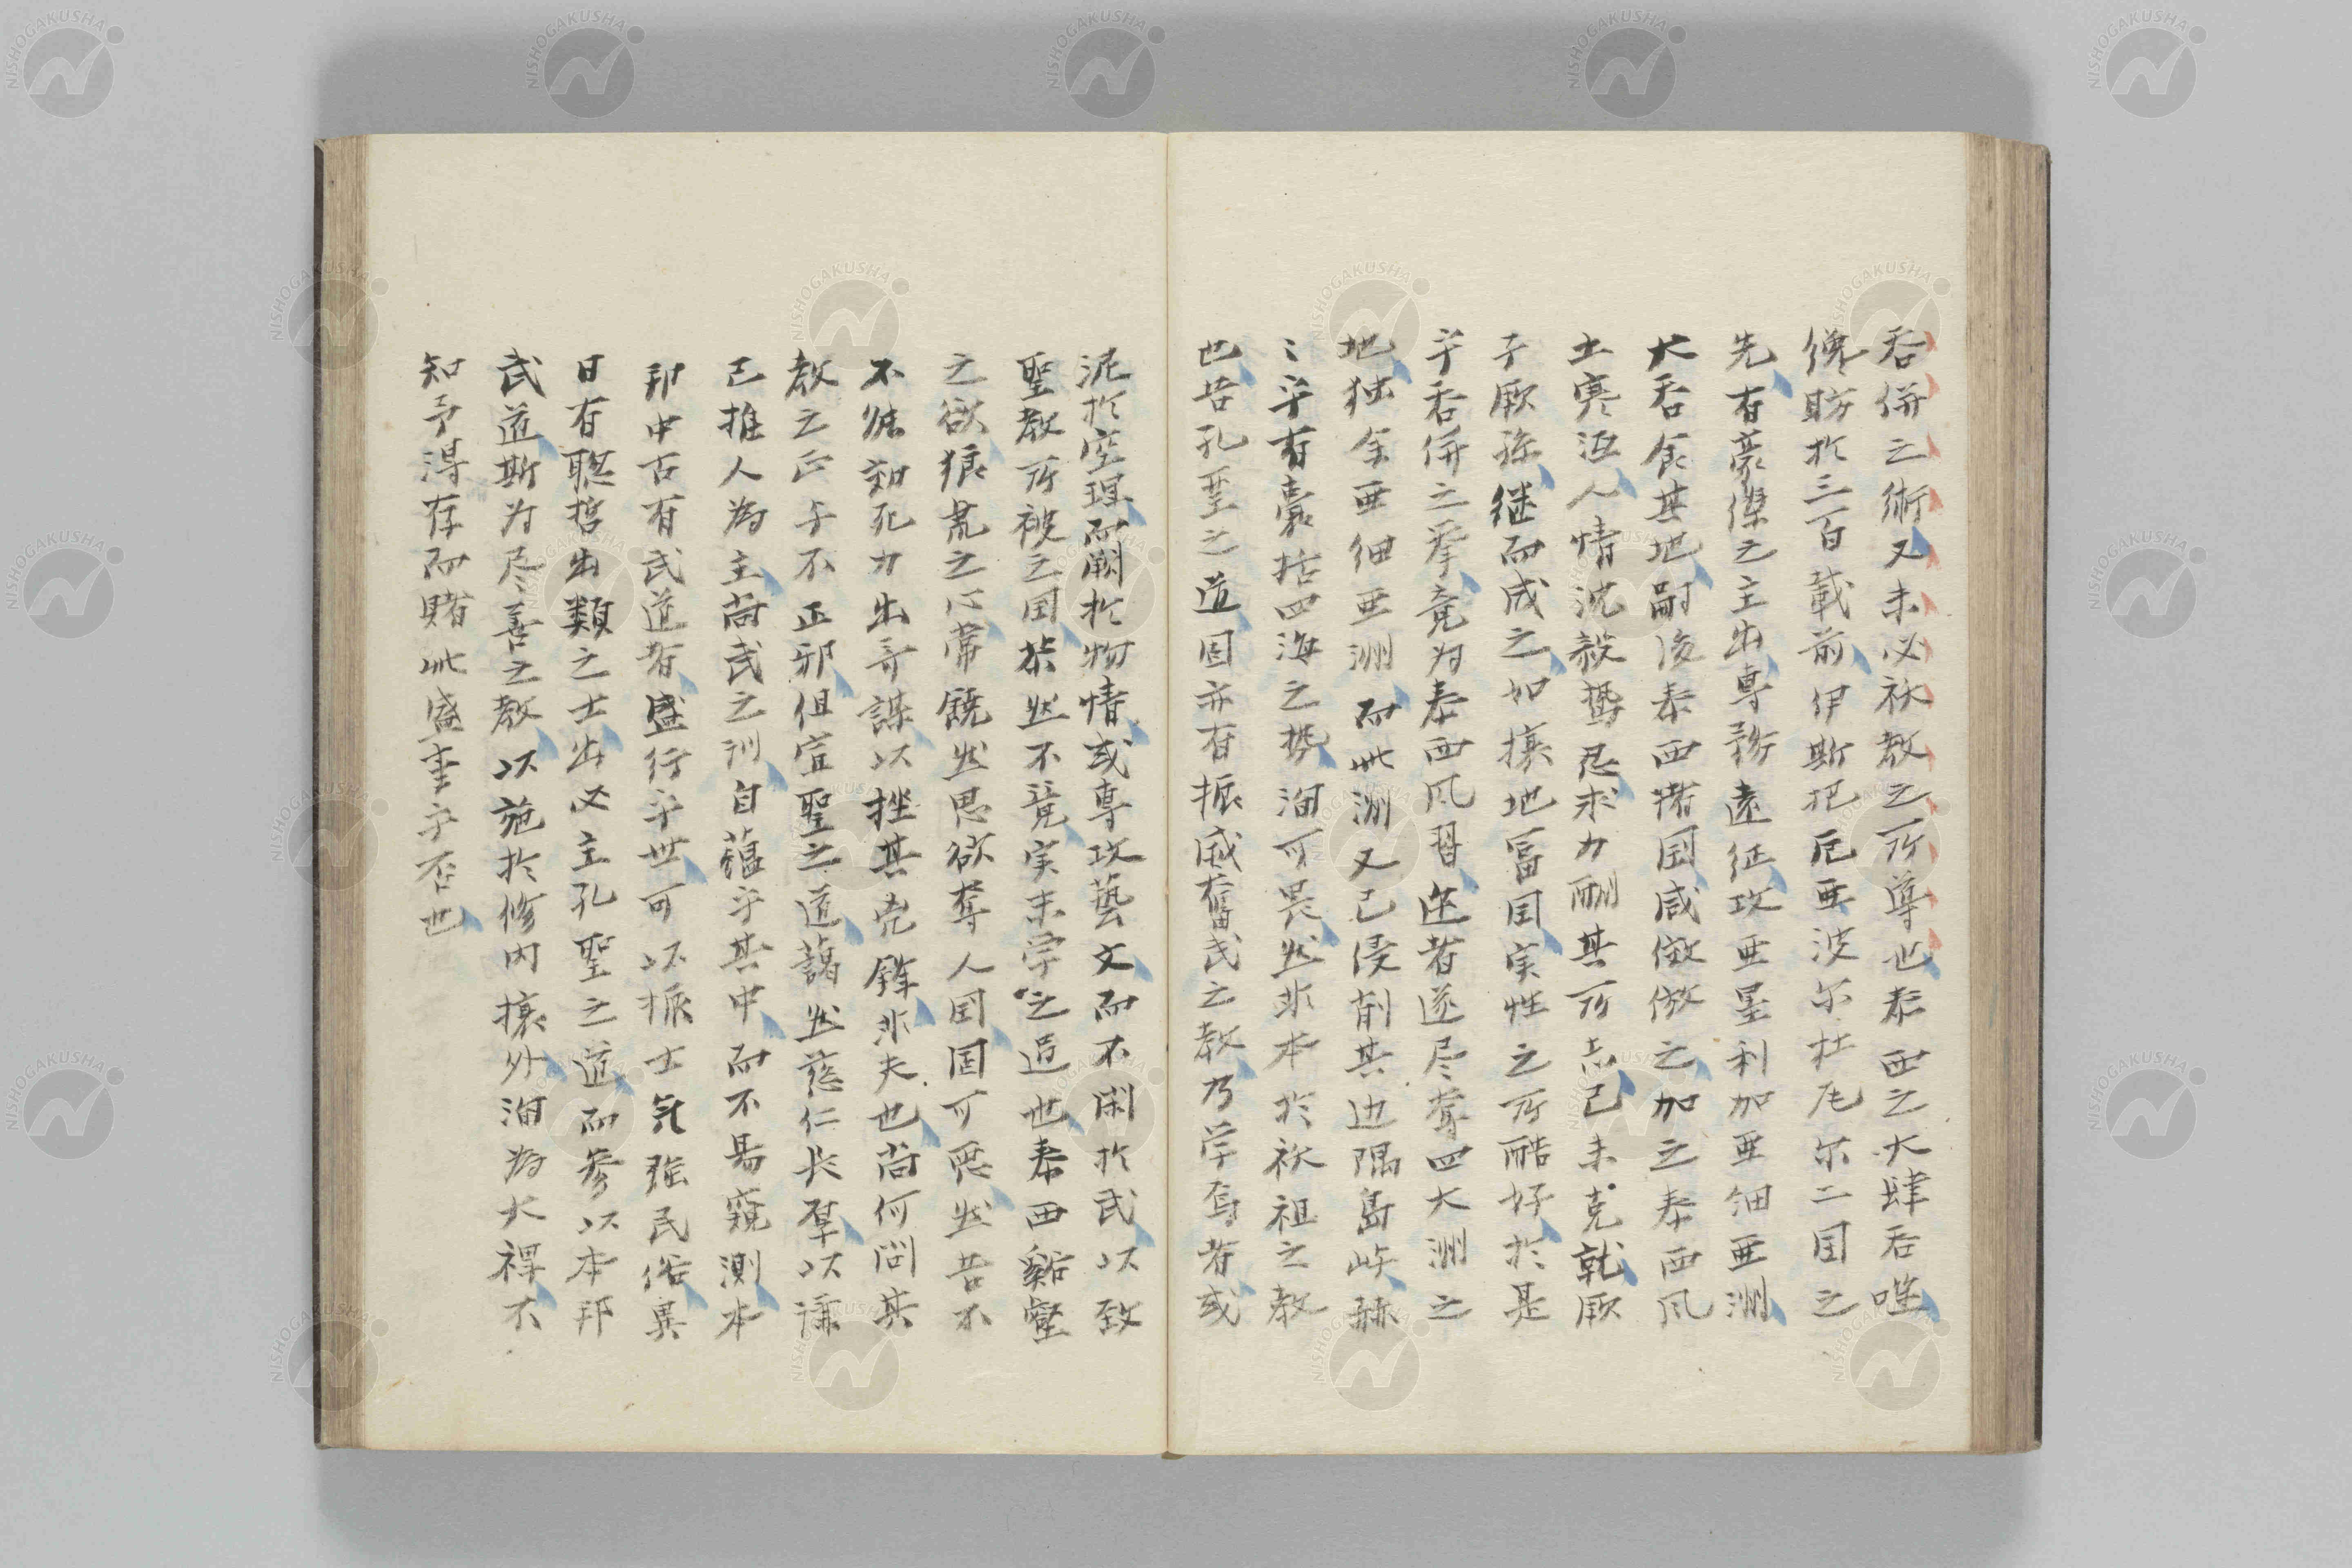 吞併之術又未必祆教之所導也泰西之大肆吞噬
儳昉於三百載前伊斯把尼亜波尓杜瓦尓二国之
先有豪傑之主出専務遠征攻亜墨利加亜細亜洲
大吞食其地嗣後泰西諸国咸傚倣之加之泰西風
土寒沍人情沈毅鷙忍求力酬其所志己未克就厥
子厥孫継而成之如攘地富国実性之所酷好於是
乎吞併之挙竟为泰西風習迩者遂尽奪四大洲之
地独余亜細亜洲而此洲又已侵削其边隅島屿赫
〻乎有囊括四海之勢洵可畏然非本於祆祖之教
也昔孔聖之道固亦有振威奮武之教乃学焉者或
泥於空理而闕於物情或専攻藝文而不閑於武以致
聖教所被之国苶然不競実末学之過也泰西谿壑
之欲狼荒之心常饒然思欲奪人国固可悪然苦不
能効死力出奇謀以挫其兇鋒非夫也尚何問其
教之正乎不正邪但宜聖之道藹然慈仁长羣以謙
己推人為主尚武之訓自蘊乎其中而不易窺測本
邦中古有武道者盛行乎世可以振士気強民俗異
日有聡哲出類之士出必主孔聖之道而参以本邦
武道斯为尽善之教以施於修内攘外洵为大裨不
知予得存而睹此盛事乎否也
NISHOGAKUSHA